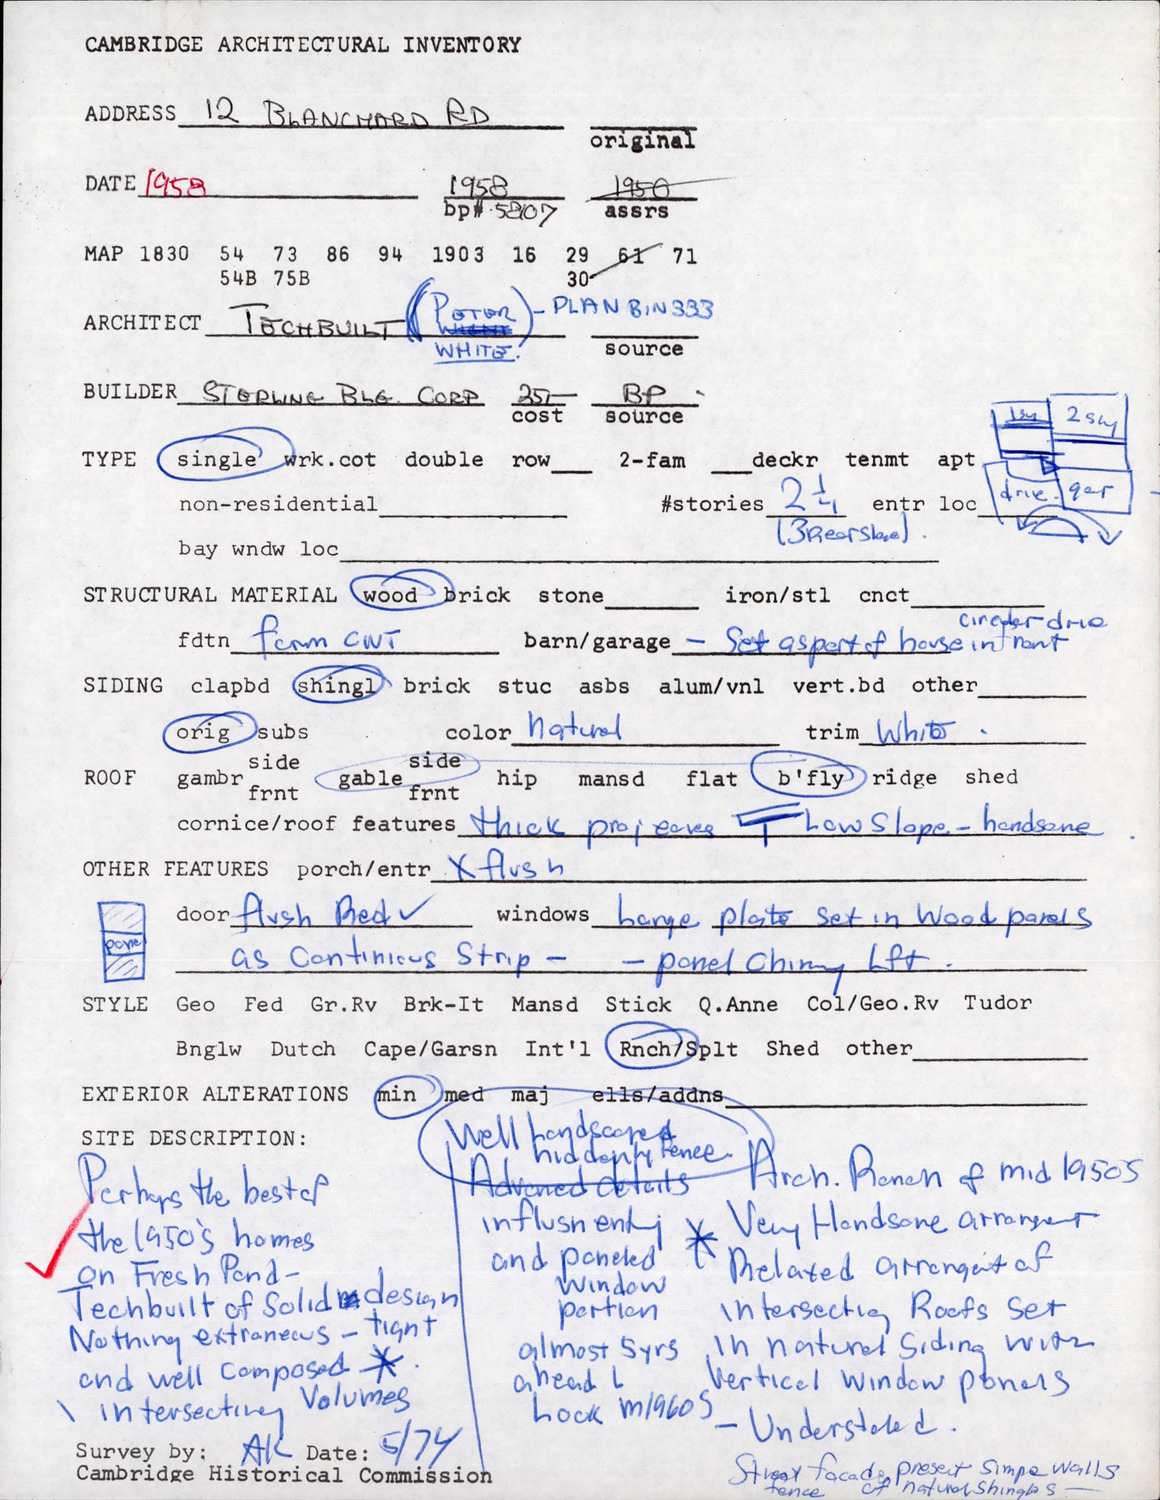 CAMBRIDGE ARCHITECTURAL INVENTORY
ADDRESS 12 BLANCHARD RD
original
DATE 1958 1958 1950
bp# 58107 assrs
MAP 1830 54 73 86 94 1903 16 29 61 71
54B 75B 30
ARCHITECT TECHBUILT (PETER WHITE) - PLAN BIN 333
source
BUILDER STERLING BLG. CORP 25,- BP
cost source
TYPE single wrk.cot double row 2-fam deckr tenmt apt
2 sty
drive gar
non-residential #stories 2 1/4 entr loc
(3 Rear Slope).
bay wndw loc
STRUCTURAL MATERIAL wood brick stone iron/stl cnct
circular drive
fdtn CMT barn/garage - Set as part of house in front
SIDING clapbd shingl brick stuc asbs alum/vnl vert.bd other
orig subs color Natural trim White.
ROOF gambr side frnt gable side frnt hip mansd flat b'fly ridge shed
cornice/roof features thick proj eaves Low Slope - handsome
OTHER FEATURES porch/entr X flush
door flush Red ✓ windows Large plate set in Wood panels
pane
as Continious Strip - - panel Chimny Lft.
STYLE Geo Fed Gr.Rv Brk-It Mansd Stick Q.Anne Col/Geo.Rv Tudor
Bnglw Dutch Cape/Garsn Int'l Rnch/Splt Shed other
EXTERIOR ALTERATIONS min med maj ells/addns
SITE DESCRIPTION:
Well Landscaped
hidden by Fence.
Perhaps the best of
the 1950's homes
on Fresh Pond -
Techbuilt of Solid design
Nothing extraneous - tight
and well composed *.
intersecting Volumes
Advanced details
in flush entry
and paneled
Window
portion
almost 5 yrs
ahead
Look m1960s
Arch. Ranch of mid 1950s
* Very Handsome arrangemt
Relaxed arrangemt of
intersecting Roofs set
in natural Siding with
Vertical Window panels
- Understated.
Street facade present simpe walls
fence of natural shingles -
Survey by: AK Date: 5/74
Cambridge Historical Commission